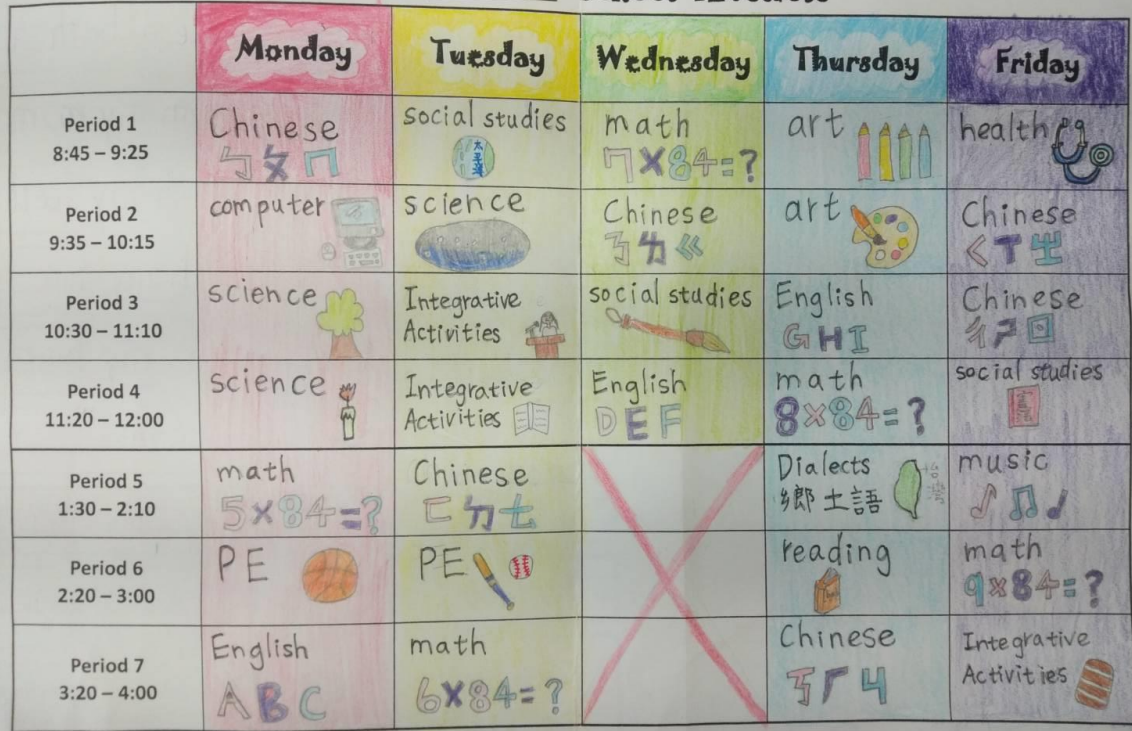 Monday
Tuesday
Wednesday
Thursday
Friday
Period 1
8:45 – 9:25
Chinese
ㄅㄆㄇ
social studies
太平洋
math
7×84=?
art
health
Period 2
9:35 – 10:15
computer
science
Chinese
ㄋㄌㄍ
art
Chinese
ㄑㄒㄓ
Period 3
10:30 – 11:10
science
Integrative
Activities
social studies
English
G H I
Chinese
ㄔㄕㄖ
Period 4
11:20 – 12:00
science
Integrative
Activities
English
D E F
math
8×84=?
social studies
Period 5
1:30 – 2:10
math
5×84=?
Chinese
ㄈㄉㄊ
Dialects
鄉土語
台灣
music
Period 6
2:20 – 3:00
PE
PE
reading
math
9×84=?
Period 7
3:20 – 4:00
English
A B C
math
6×84=?
Chinese
ㄎㄏㄐ
Integrative
Activities